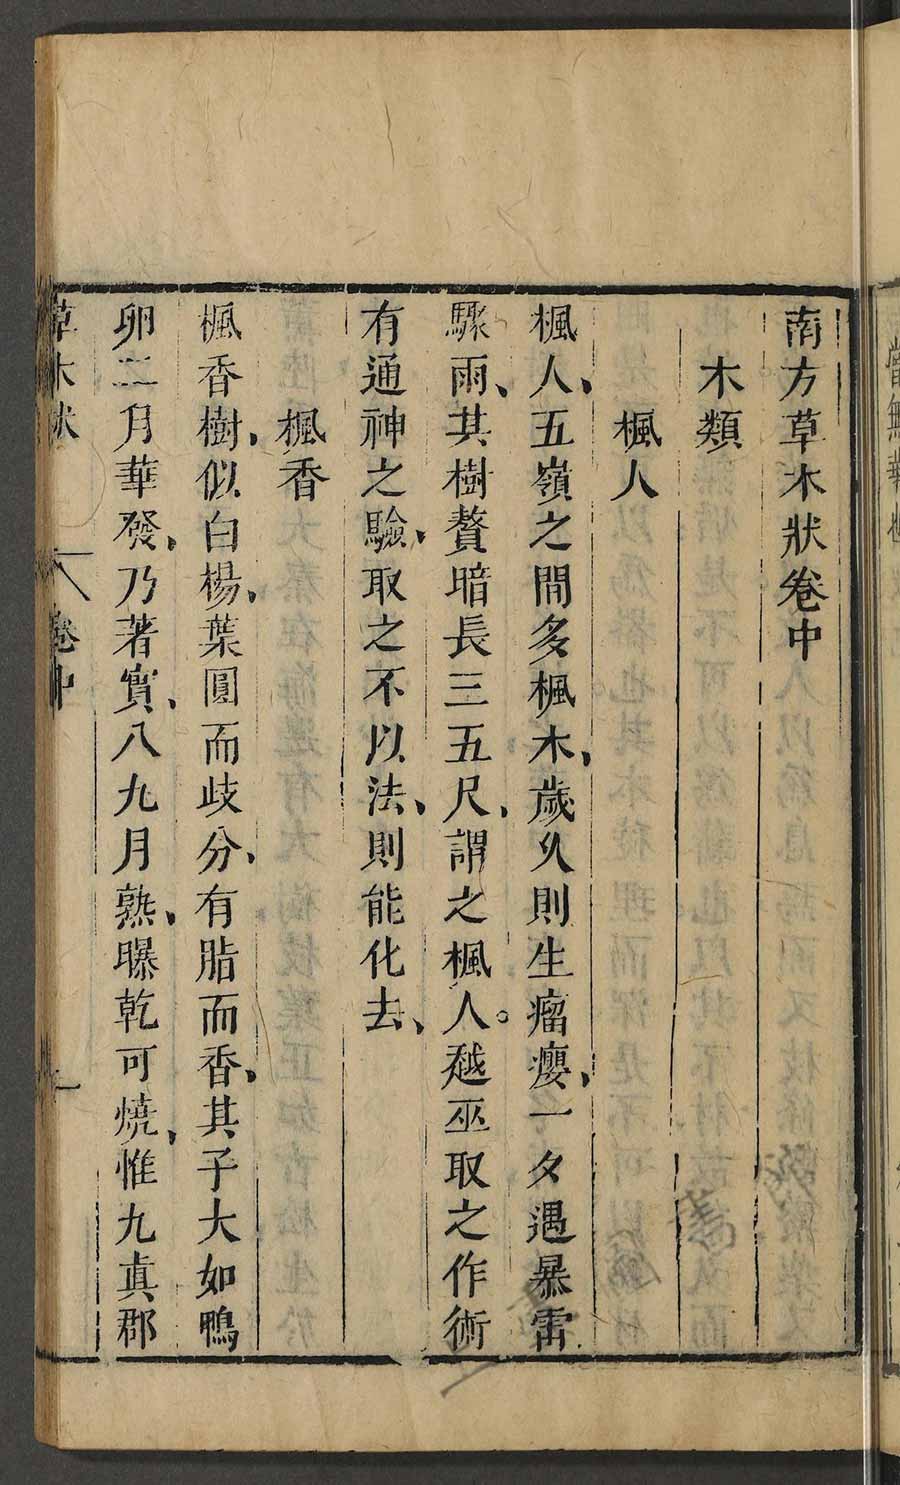 南方草木狀卷中
木類
楓人
楓人、五嶺之間多楓木、歲久則生瘤癭、一夕遇暴雷
驟雨、其樹贅暗長三五尺、謂之楓人。越巫取之作術
有通神之驗、取之不以法、則能化去、
楓香
楓香樹、似白楊、葉圓而歧分、有脂而香、其子大如鴨
卵二月華發、乃著實、八九月熟、曝乾可燒、惟九真郡
草木狀 卷中 一